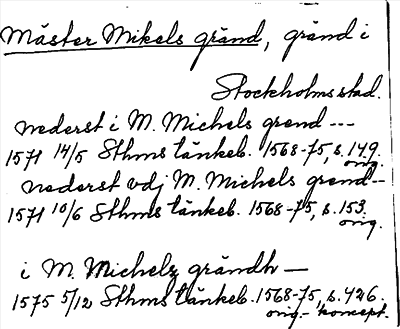 Mäster Mikels gränd, gränd i
Stockholms stad.
nederst i M. Michels grend ---
1571 14/5 Sthms tänkeb. 1568-75, s. 149.
orig.
nederst vdj M. Michels grend--
1571 10/6 Sthms tänkeb. 1568-75, s. 153.
orig.
i M. Michelz grändh —
1575 5/12 Sthms tänkeb. 1568-75, s. 426.
orig.- koncept.